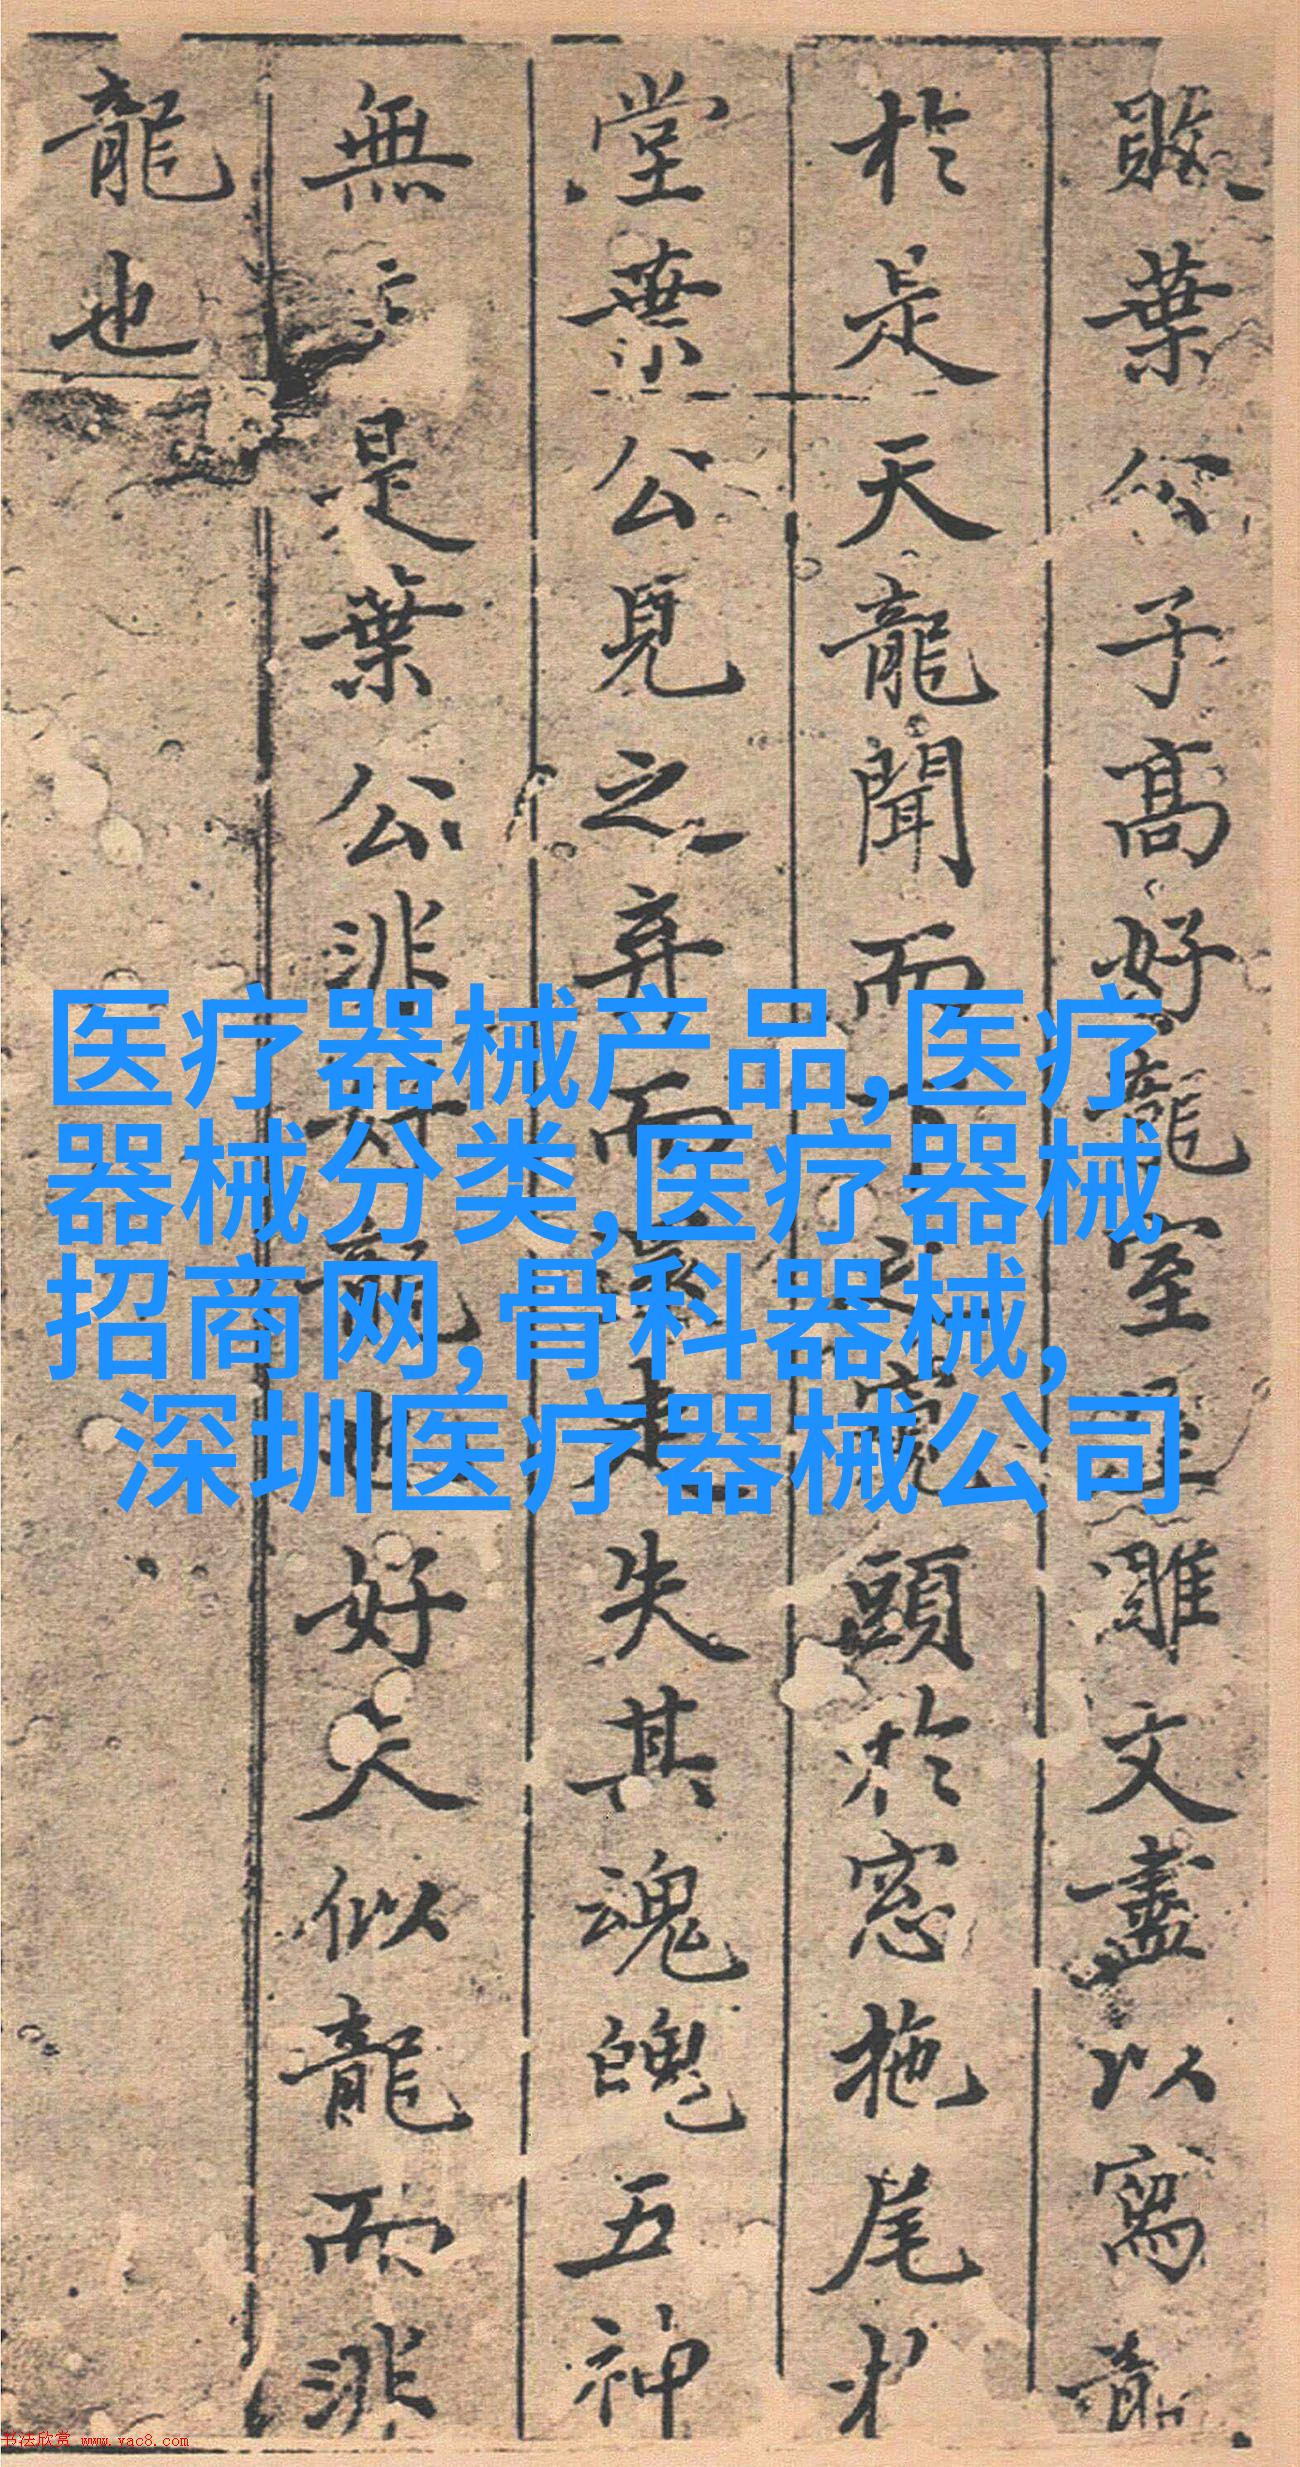 敗葉公子髙好龍室屋雕文盡以寫龍
於是天龍聞而下之窺頭於窓拖尾
堂葉公見之弃而還走失其魂魄五神
無主是葉公非好龍也好夫似龍而非
龍也
医疗器械产品,医疗
器械分类,医疗器械
招商网,骨科器械,
深圳医疗器械公司
书法欣赏 www.yac8.com